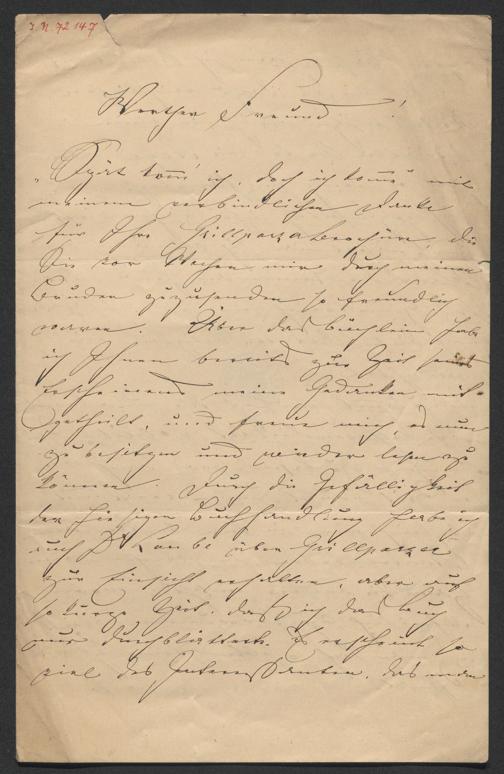 I.N. 72147
Werther Freund!
„Spät komm' ich, doch ich komme" mit
meinem verbindlichen Danke
für Ihre Grillparzerbrochüre, die
Sie vor Wochen mir durch meinen
Bruder zuzusenden so freundlich
waren. Über das Büchlein habe
ich Ihnen bereits zur Zeit seines
Erscheinens meine Gedanken mit-
getheilt, und freue mich, es nun
zu besitzen und wieder lesen zu
können. Durch die Gefälligkeit
der hiesigen Buchhandlung habe ich
auch Dr Laube über Grillparzer
zur Einsicht erhalten, aber auf
so kurze Zeit, dass ich das Buch
nur durchblätterte. Es erscheint so
viel des Interessanten, das man